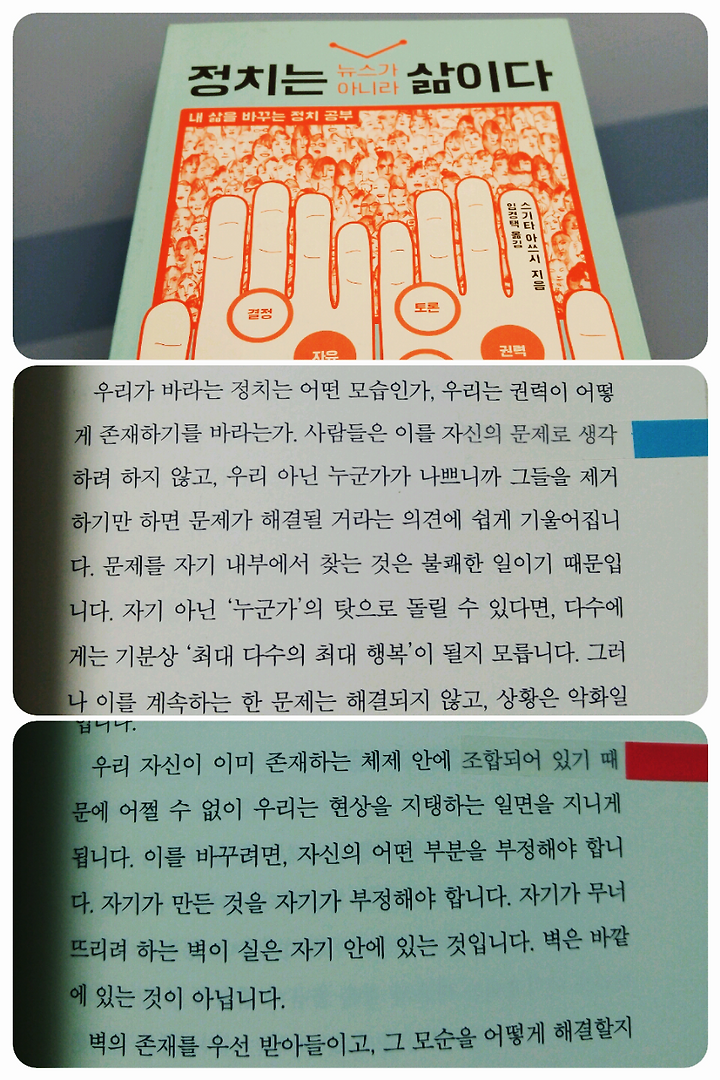 정치는 뉴스가 아니라 삶이다
내 삶을 바꾸는 정치 공부
스기타 아쓰시 지음
임경택 옮김
결정
토론
자유
권력
우리가 바라는 정치는 어떤 모습인가, 우리는 권력이 어떻
게 존재하기를 바라는가. 사람들은 이를 자신의 문제로 생각
하려 하지 않고, 우리 아닌 누군가가 나쁘니까 그들을 제거
하기만 하면 문제가 해결될 거라는 의견에 쉽게 기울어집니
다. 문제를 자기 내부에서 찾는 것은 불쾌한 일이기 때문입
니다. 자기 아닌 ‘누군가’의 탓으로 돌릴 수 있다면, 다수에
게는 기분상 ‘최대 다수의 최대 행복’이 될지 모릅니다. 그러
나 이를 계속하는 한 문제는 해결되지 않고, 상황은 악화일
입니다.
우리 자신이 이미 존재하는 체제 안에 조합되어 있기 때
문에 어쩔 수 없이 우리는 현상을 지탱하는 일면을 지니게
됩니다. 이를 바꾸려면, 자신의 어떤 부분을 부정해야 합니
다. 자기가 만든 것을 자기가 부정해야 합니다. 자기가 무너
뜨리려 하는 벽이 실은 자기 안에 있는 것입니다. 벽은 바깥
에 있는 것이 아닙니다.
벽의 존재를 우선 받아들이고, 그 모순을 어떻게 해결할지